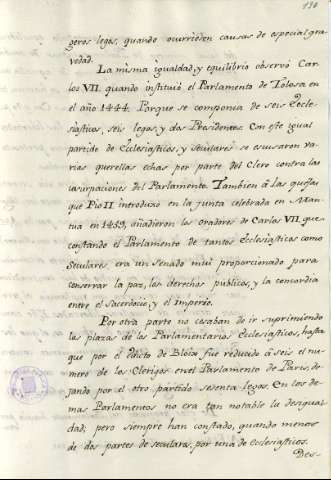 130
geros legos, quando ocurrieden causas de especial gra-
vedad.
La misma igualdad y equilibrio observó Car-
los VII. quando instituió el Parlamento de Tolosa en
el año 1444. Porque se componia de seis Ecle-
siasticos, seis legos, y dos Presidentes. Con este igual
partido de Eclesiasticos, y seculares se escusaron va-
rias querellas echas por parte del Clero contra las
usurpaciones del Parlamento. Tambien á las quejas
que Pio II introduxo en la junta celebrada en Man-
tua en 1459, añadieron los oradores de Carlos VII, que
constando el Parlamento de tantos Ecclesiasticos como
Seculares, era un Senado mui proporcionado para
conservar la paz, los derechos publicos, y la concordia
entre el Sacerdocio, y el Imperio.
Por otra parte no cesaban de ir suprimiendo
las plazas de los Parlamentarios Ecclesiasticos, hasta
que por el Edicto de Bloise fue reducido á seis el nu-
mero de los Clerigos en el Parlamento de Paris, de-
jando por el otro partido sesenta legos. En los de-
mas Parlamentos no era tan notable la desigual-
dad; pero siempre han constado, quando menos
de dos partes de seculares, por una de Ecclesiasticos.
Des-